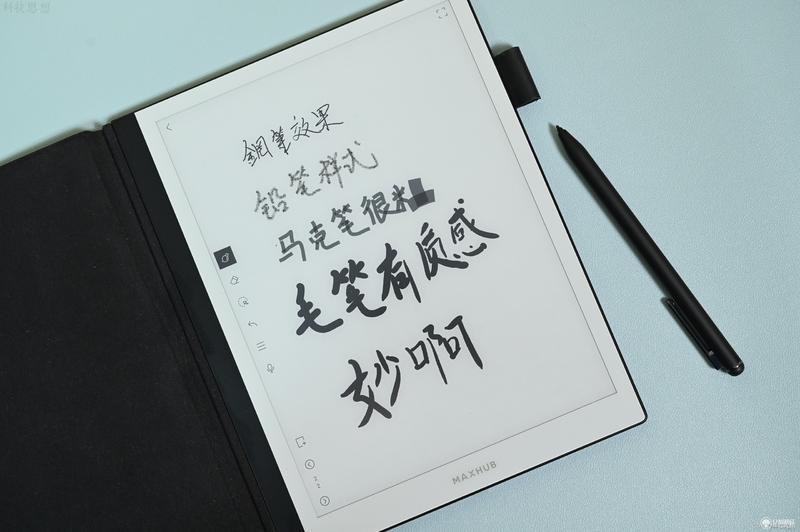 科技思想
鋼筆效果
铅笔样式
马克笔很
毛笔有质感
妙啊
2
2
MAXHUB